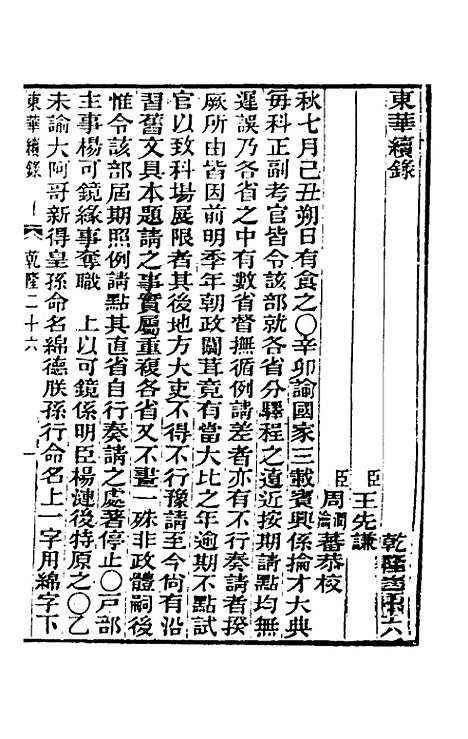 東華續錄
乾隆二十六
臣王先謙
臣周潤蕃
瀹蕃恭校
秋七月己丑朔日有食之〇辛卯諭國家三載賓興係掄才大典
每科正副考官皆令該部就各省分驛程之遠近按期請點均無
遲誤乃各省之中有數省督撫循例請差者亦有不行奏請者揆
厥所由皆因前明季年朝政闒茸竟有當大比之年逾期不點試
官以致科場展限者其後地方大吏不得不行豫請至今尙有沿
習舊文具本題請之事實屬重複各省又不畫一殊非政體嗣後
惟令該部屆期照例請點其直省自行奏請之處著停止〇戸部
主事楊可鏡緣事奪職　上以可鏡係明臣楊漣後特原之〇乙
未諭大阿哥新得皇孫命名綿德朕孫行命名上一字用綿字下
東華續錄　乾隆二十六　一